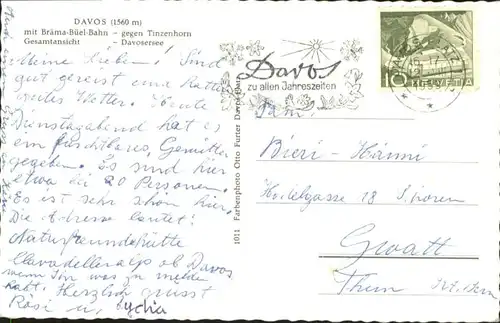 DAVOS (1560 m)
mit Bräma-Büel-Bahn - gegen Tinzenhorn
Gesamtansicht - Davosersee
Meine Lieben! Sind
gut gereist und hatten
gutes Wetter. Heute
Dienstagabend hat es
ein furchtbares Gewitter
gegeben. Es sind hier
etwa bei 20 Personen.
Es ist sehr schön hier.
Die Adresse lautet!
Naturfreundehütte
Clavadelleralp ob Davos
wenn Ihr was zu melden
habt. Herzlich grüsst
Rösi u.
1011 Farbenphoto Otto Furter Davos
Davos
zu allen Jahreszeiten
10
HELVETIA
Fam.
Bieri-Hänni
18
Gwatt
Thun Kt. Bern